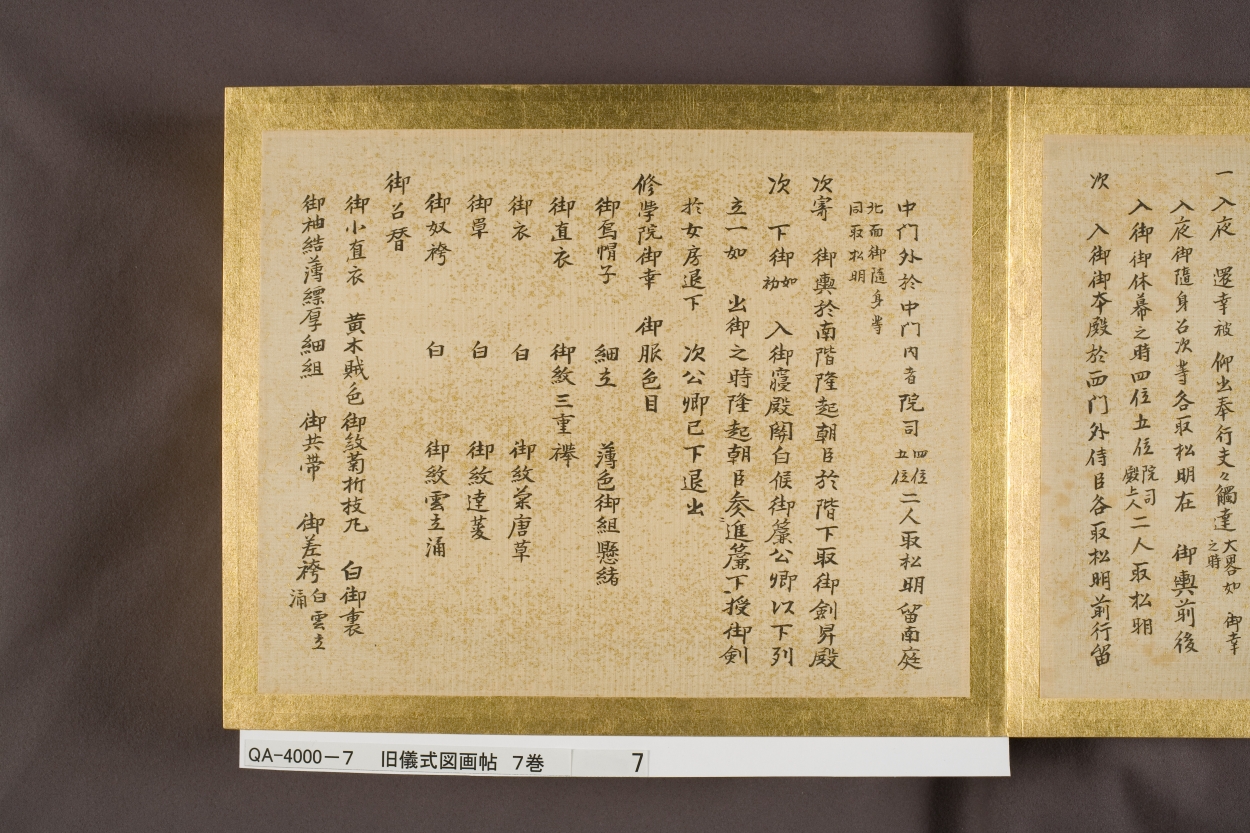 一 入夜 還幸被 仰出奉行夫々觸達 大畧如 御幸之時
入夜御隨身召次等各取松明在 御輿前後
入御御休幕之時四位五位 院司殿上人 二人取松明
次 入御御本殿於西門外侍臣各取松明前行留
中门外於中门内者院司 四位五位 二人取松明留南庭
北面御隨身等同取松明
次寄 御輿於南階隆起朝臣於階下取御劍昇殿
次 下御 如初 入御寢殿關白候御簾公卿以下列
立一如 出御之時隆起朝臣参進簾下授御剣
於女房退下 次公卿已下退出
修学院御幸 御服色目
御烏帽子 細立 薄色御組懸緒
御直衣 御紋三重襷
御衣 白 御紋菊唐草
御單 白 御紋遠菱
御奴袴 白 御紋雲立涌
御召替
御小直衣 黄木賊色 御紋菊折枝 白御裏
御袖結薄縹厚細組 御共帯 御差袴 白雲立涌
QA-4000-7 旧儀式図画帖 7巻 7